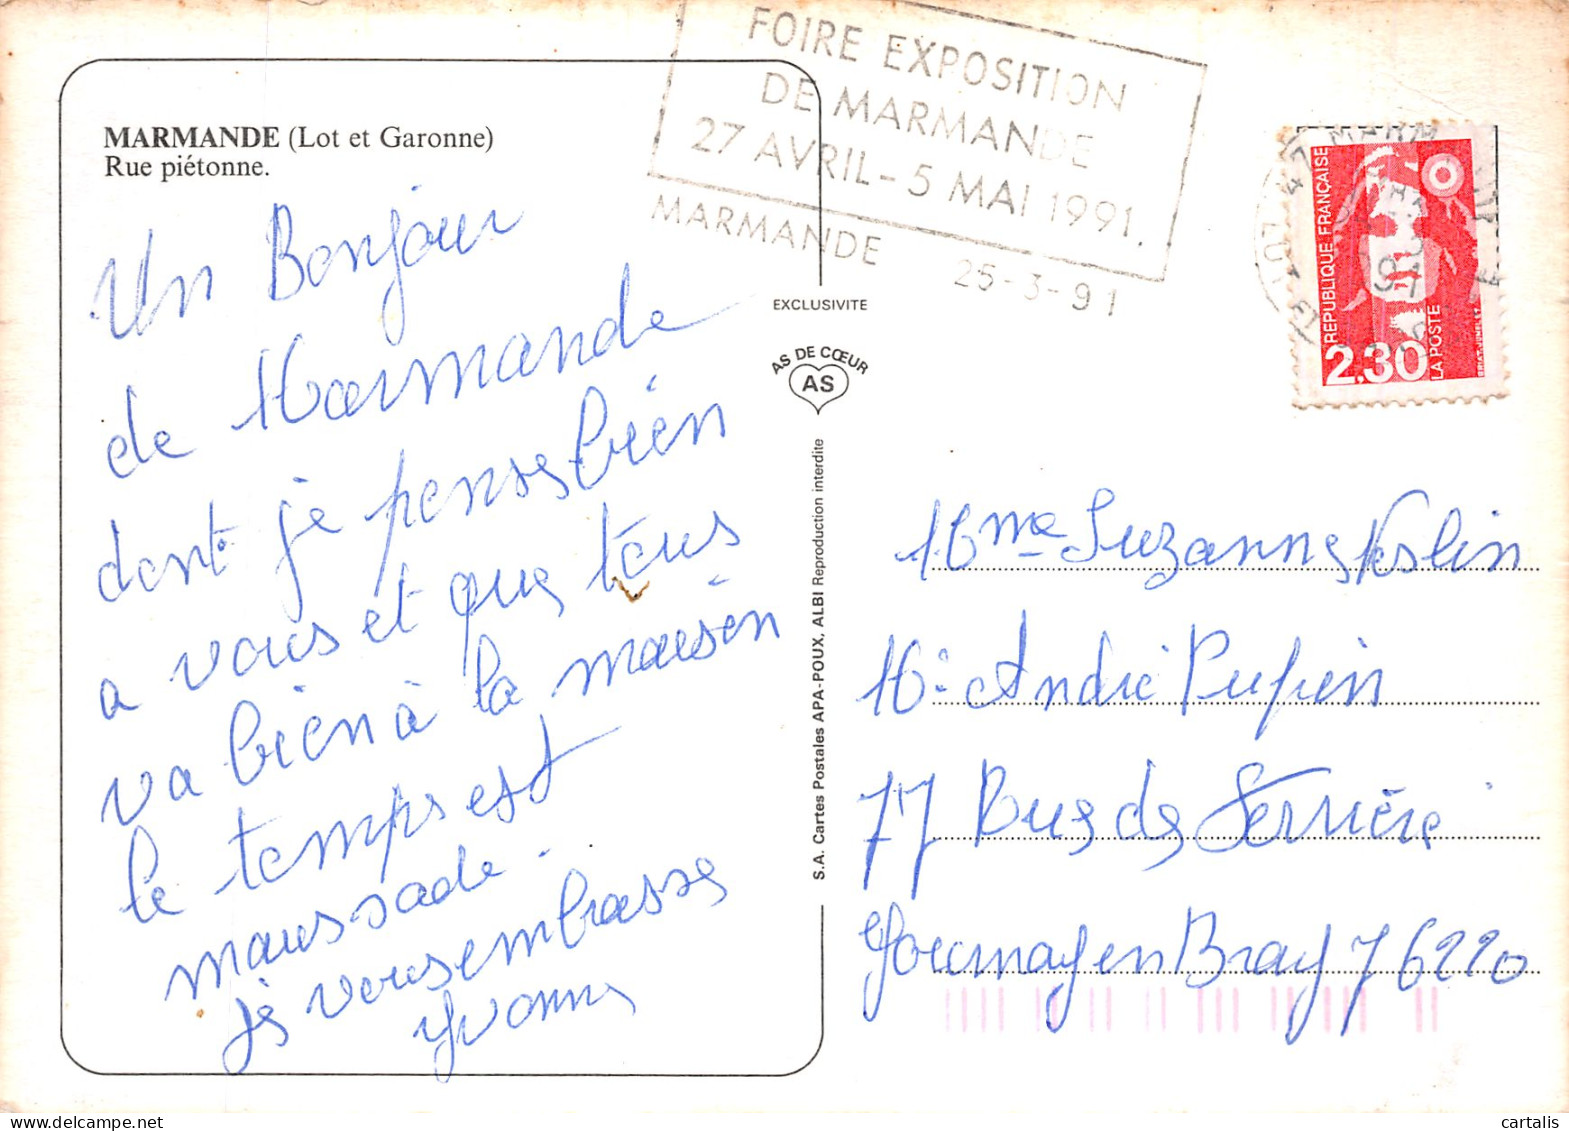 MARMANDE (Lot et Garonne)
Rue piétonne.
Un Bonjour
de Marmande
dont je pense bien
a vous et que tous
va bien à la maison
le temps est
maussade.
je vous embrasse
Yvonne
FOIRE EXPOSITION
DE MARMANDE
27 AVRIL - 5 MAI 1991.
MARMANDE 25-3-91
EXCLUSIVITE
AS DE CŒUR
AS
S.A. Cartes Postales APA-POUX, ALBI Reproduction interdite
47 MARM
REPUBLIQUE FRANÇAISE
2,30
LA POSTE
Mme Suzanne
Mr André Pupin
77 Rue de Ferrière
Gournay en Bray 76220
cartalis